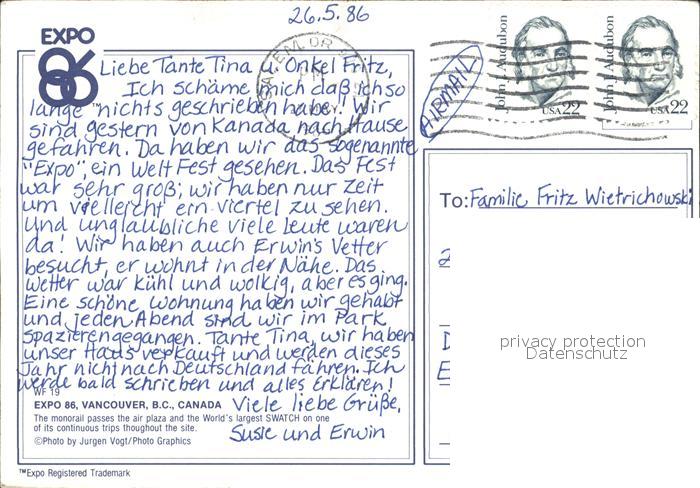 26.5.86
EXPO
86
Liebe Tante Tina u. Onkel Fritz,
Ich schäme mich daß ich so
lange nichts geschrieben habe! Wir
sind gestern von Kanada nach Hause
gefahren. Da haben wir das sogenannte
"Expo", ein Welt Fest gesehen. Das Fest
war sehr groß; wir haben nur Zeit
um vielleicht ein viertel zu sehen.
Und unglaubliche viele leute waren
da! Wir haben auch Erwin's Vetter
besucht, er wohnt in der Nähe. Das
wetter war kühl und wolkig, aber es ging.
Eine schöne wohnung haben wir gehabt
und jeden Abend sind wir im Park
spazierengegangen. Tante Tina, wir haben
unser Haus verkauft und werden dieses
Jahr nicht nach Deutschland fahren. Ich
werde bald schrieben und alles Erklären!
Viele liebe Grüße,
Susie und Erwin
WF 19
EXPO 86, VANCOUVER, B.C., CANADA
The monorail passes the air plaza and the World's largest SWATCH on one
of its continuous trips thoughout the site.
©Photo by Jurgen Vogt/Photo Graphics
™Expo Registered Trademark
SALEM, OR
PM
AIRMAIL
John J. Audubon
USA 22
John J. Audubon
USA 22
To: Familie Fritz Wietrichowski
privacy protection
Datenschutz